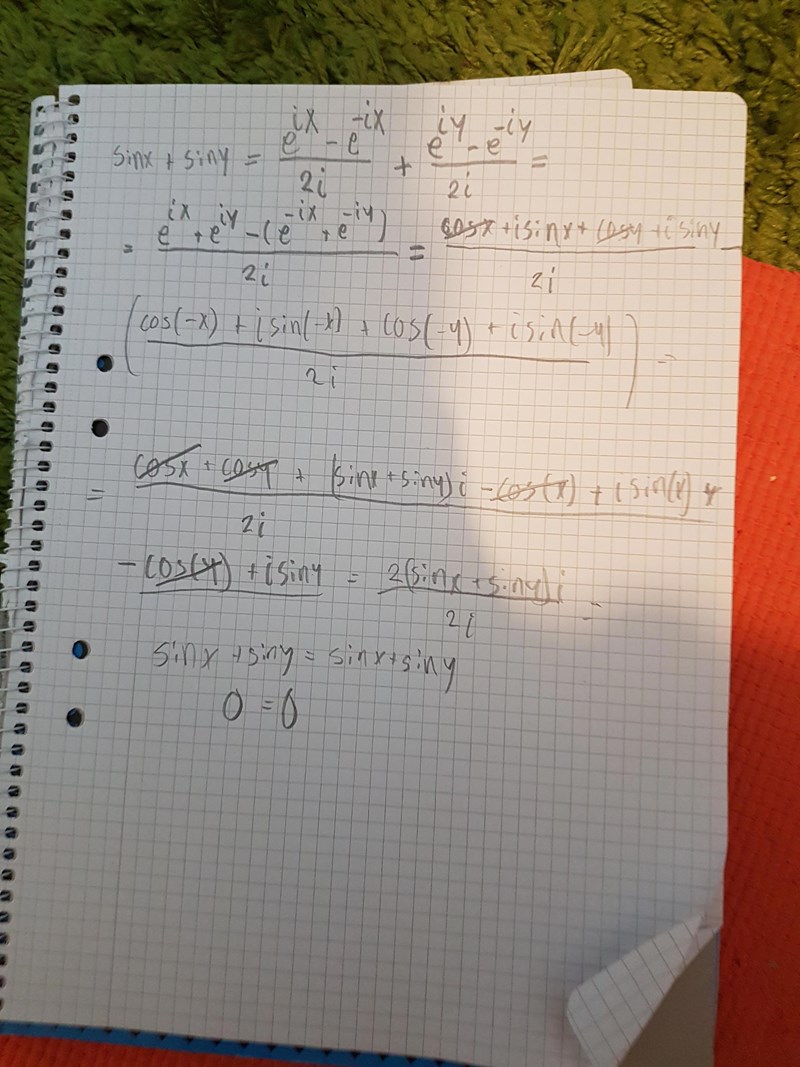 sinx + siny = \frac{e^{ix} - e^{-ix}}{2i} + \frac{e^{iy} - e^{-iy}}{2i} =
= \frac{e^{ix} + e^{iy} - (e^{-ix} + e^{-iy})}{2i} = \frac{cosx + isinx + cosy + isiny}{2i} -
\left(\frac{cos(-x) + isin(-x) + cos(-y) + isin(-y)}{2i}\right) =
= \frac{cosx + cosy + (sinx + siny)i - cos(x) + isin(x) +}{2i}
\frac{- cos(y) + isiny}{} = \frac{2(sinx + siny)i}{2i} =
sinx + siny = sinx + siny
0 = 0